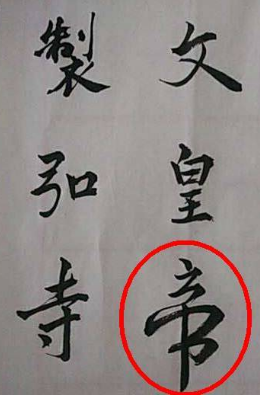 文皇帝
製弘寺